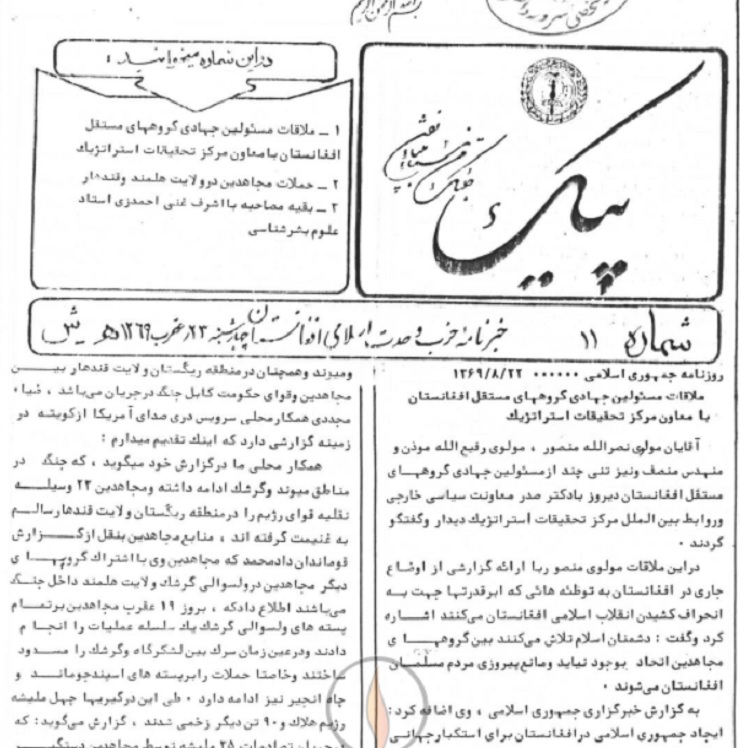 بسم الله الرحمن الرحیم
پیک
دراین شماره میخوانید :
۱ ــ ملاقات مسئولین جهادی گروههای مستقل
افغانستان با معاون مرکز تحقیقات استراتژیک
۲ ــ حملات مجاهدین درولایت هلمند وقندهار
۲ ــ بقیه مصاحبه با اشرف غنی احمدزی استاد
علوم بشرشناسی
شماره ۱۱ خبرنامه حزب وحدت اسلامی افغانستان چهارشنبه ۲۳ عقرب ۱۳۶۹ هـ ش
روزنامه جمهوری اسلامی ۰۰۰۰۰۰ ۱۳۶۹/۸/۲۲
ملاقات مسئولین جهادی گروههای مستقل افغانستان
با معاون مرکز تحقیقات استراتژیک
آقایان مولوی نصرالله منصور ، مولوی رفیع الله موذن و
مهندس منصف ونیز تنی چند ازمسئولین جهادی گروههـای
مستقل افغانستان دیروز بادکتر صدر معاونت سیاسی خارجی
وروابط بین الملل مرکز تحقیقات استراتژیک دیدار وگفتگو
کردند ۰
دراین ملاقات مولوی منصور با ارائه گزارشی از اوضاع
جاری در افغانستان به توطئه هائی که ابرقدرتها جهت بـه
انحراف کشیدن انقلاب اسلامی افغانستان می‌کنند اشـاره
کرد وگفت : دشمنان اسلام تلاش می‌کنند بین گروههـا ی
مجاهدین اتحاد بوجود نیاید ومانع پیروزی مردم مسلمـان
افغانستان می‌شوند ۰
به گزارش خبرگزاری جمهوری اسلامی ، وی اضافه کرد :
ایجاد جمهوری اسلامی درافغانستان برای استکبارجهانـی
ومیوند وهمچنان درمنطقه ریگستان ولایت قندهار بیـن
مجاهدین وقوای حکومت کابل جنگ درجریان می‌باشد ، ضیاء
مجددی همکار محلی سرویس دری صدای آمریکا ازکویته در
زمینه گزارشی دارد که اینک تقدیم میدارم :
همکار محلی ما درگزارش خود میگوید ، که جنگ در
مناطق میوند وگرشک ادامه داشته ومجاهدین ۲۳ وسیلـه
نقلیه قوای رژیم را درمنطقه ریگستان ولایت قندهارسالـم
به غنیمت گرفته اند ، منابع مجاهدین بنقل ازگـزارش
قوماندان دادمحمد که مجاهدین وی با اشتراک گروپهـا ی
دیگر مجاهدین درولسوالی گرشک ولایت هلمند داخل جنـگ
می‌باشند اطلاع دادکه ، بروز ۱۹ عقرب مجاهدین برتمـام
پسته های ولسوالی گرشک یک سلسله عملیات را انجـا م
دادند ودرعین زمان سرک بین لشکرگاه وگرشک را مسـدود
ساختند وخاصتا حملات رابرپسته های اسپندچومانـد و
چاه انجیر نیز ادامه دارد ۰ طی این درگیریها چهل ملیشه
رژیم هلاک و۹۰ تن دیگر زخمی شدند ، گزارش می‌گوید : که
درجریان تصادمات ۲۵ ملیشه توسط مجاهدین دستگیـر